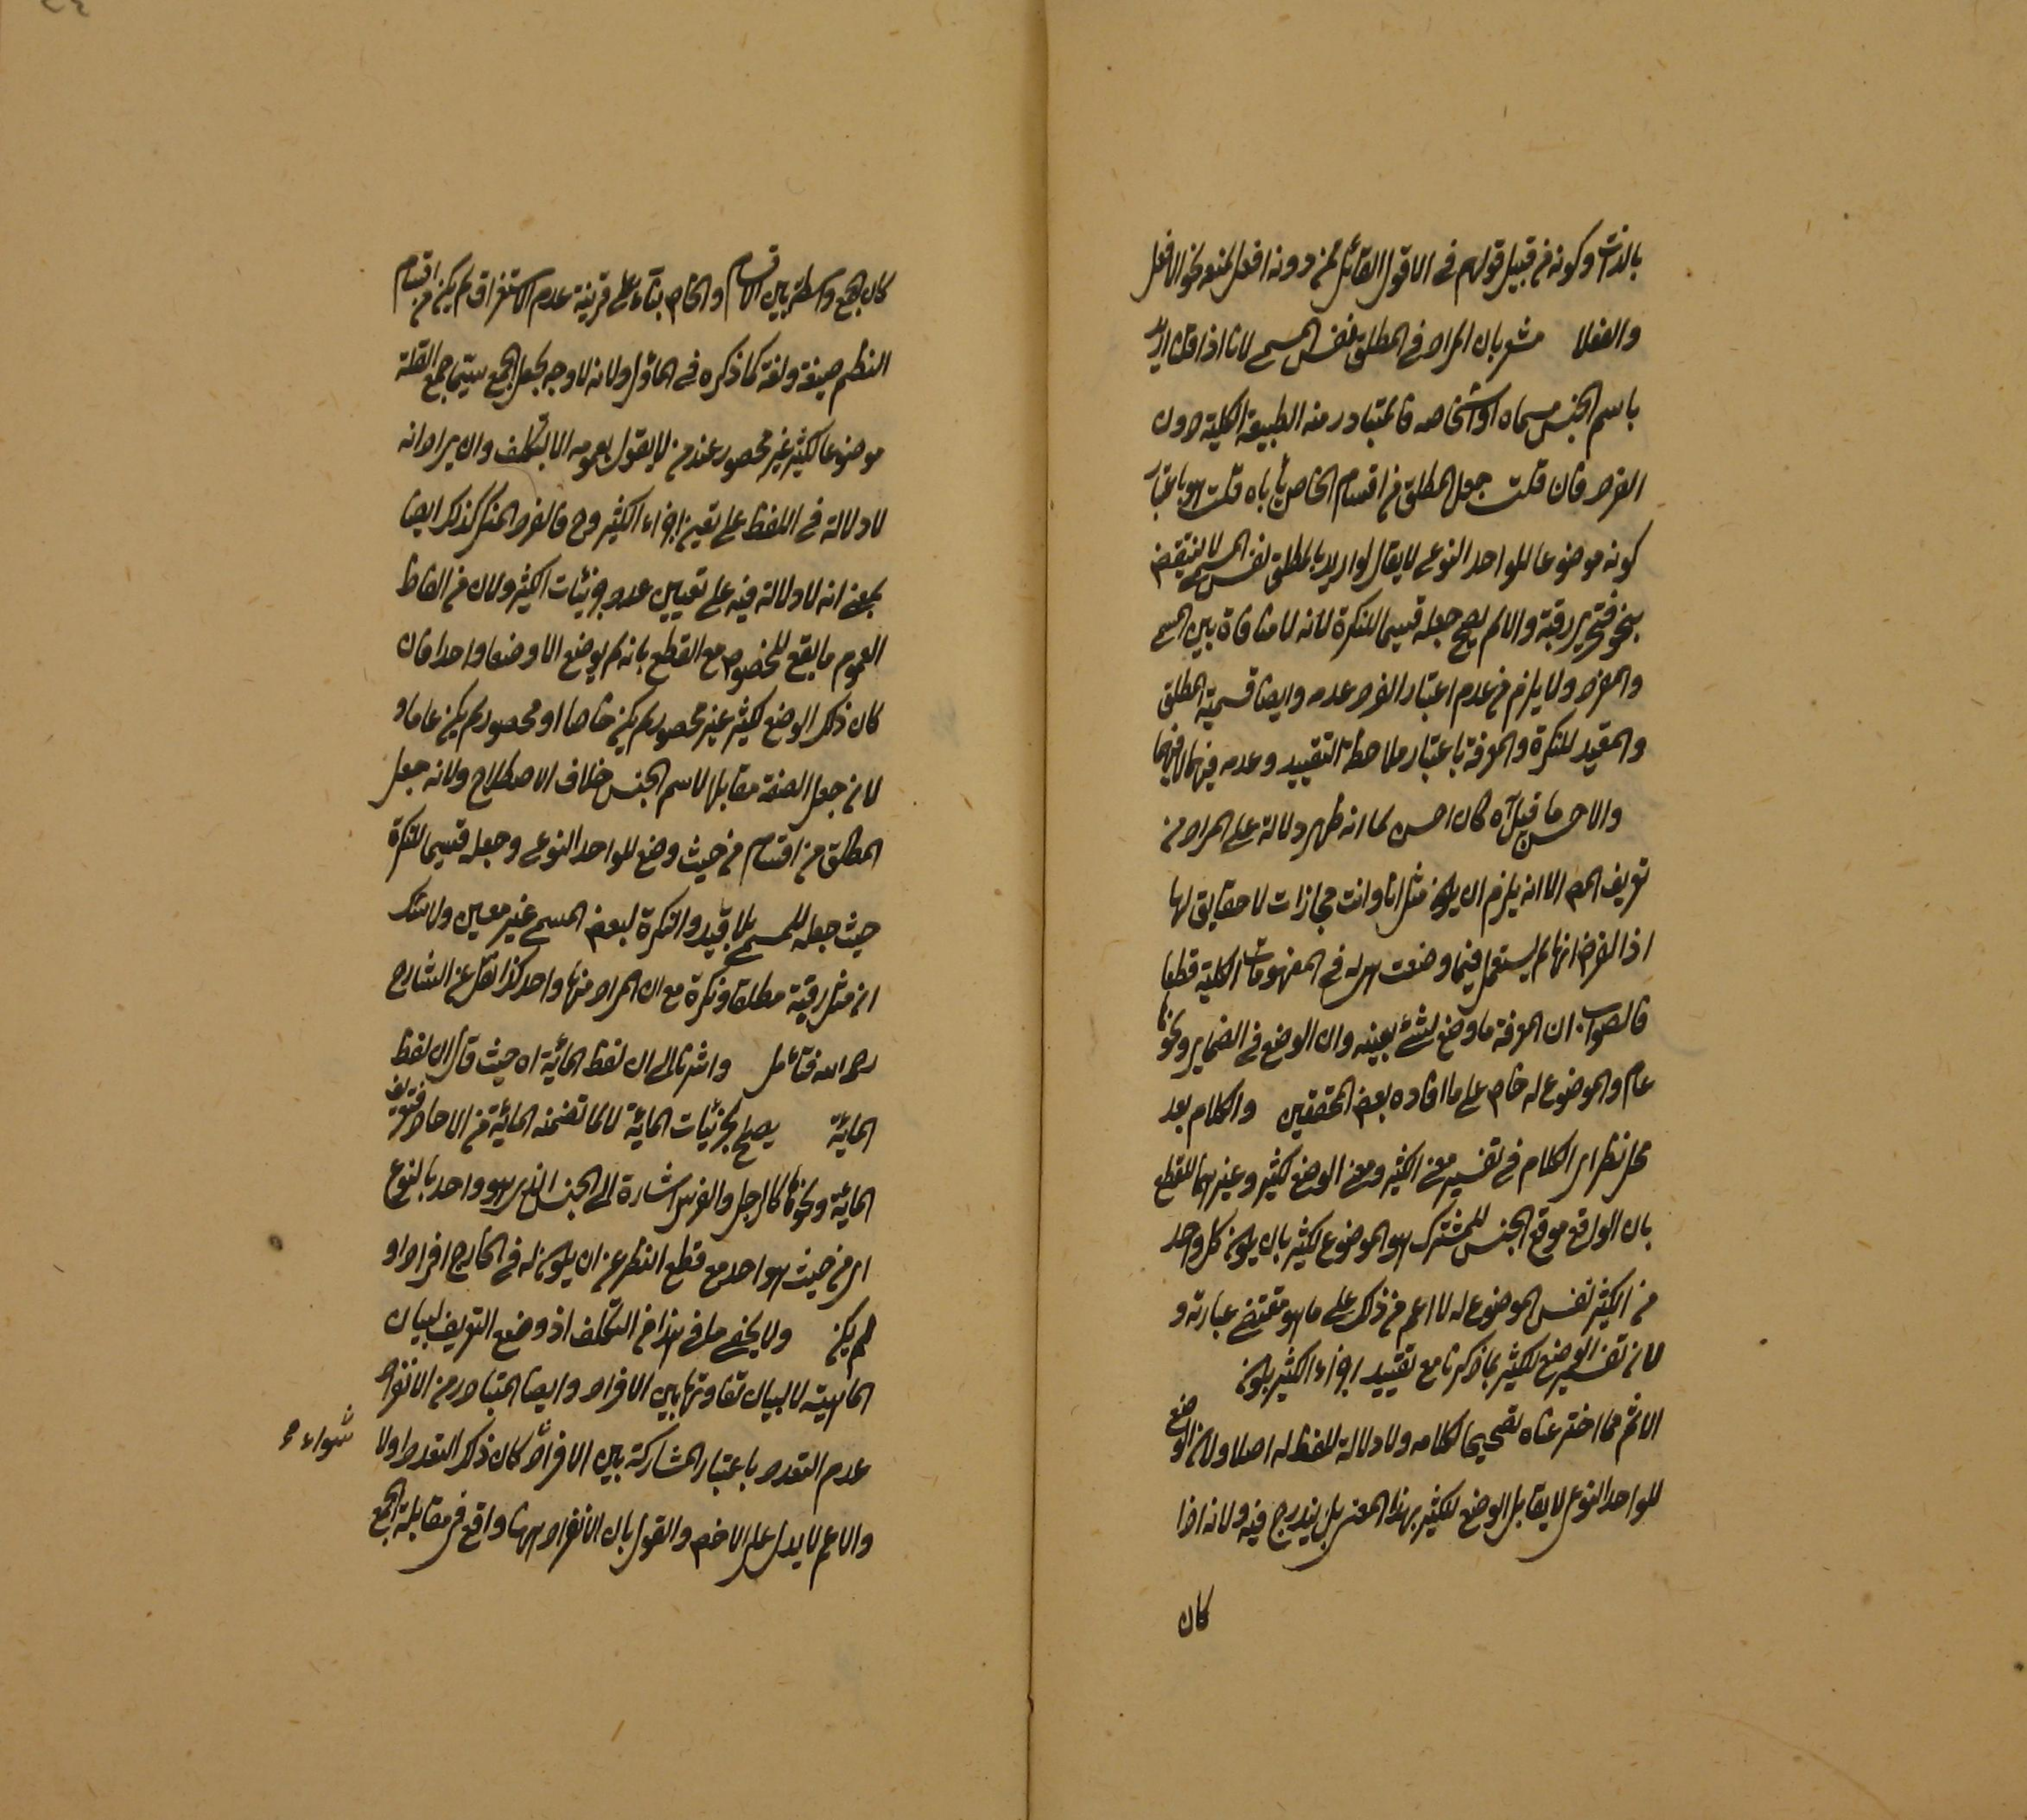 بالذات وكونه من قبيل قولهم في الامر قول القائل لمن دونه افعل لمنعه نحو لا تفعل
والفعلا مشعر بان المراد في المطلق نفس المسمى لانا اذا قلنا اريد
باسم الجنس مسماه او اشخاصه فالمتبادر منه الطبيعة الكلية دون
الفرد فان قلت جعل المطلق من اقسام الخاص يأباه قلت هو باعتبار
كونه موضوعا للواحد النوعي لا يقال لو اريد بالمطلق نفس المسمى لانتقض
بنحو فتحرير رقبة والا لم يصح جعله قسيما للنكرة لانه لا منافاة بين المسمى
والفرد ولا يلزم من عدم اعتبار الفرد عدمه وايضا قسمية المطلق
والمقيد للنكرة والمعرفة باعتبار ملاحظة التقييد وعدمه فيهما لا فيهما
والاحسن ما قيل آه كان احسن لما انه ظهر دلالة على المراد من
تعريف المص الا انه يلزم ان يكون مثل انا وانت مجازات لا حقايق لها
اذا الفرض انها لم يستعمل فيما وضعت هي له في المفهومات الكلية قطعا
فالصواب ان المعرفة ما وضع لشئ بعينه وان الوضع في الضماير ونحوها
عام والموضوع له خاص على ما افاده بعض المحققين والكلام بعد
محل نظر اي الكلام في تفسير معنى الكثير ومعنى الوضع لكثير وغيرهما للقطع
بان الواقع موقع الجنس للمشترك هو الموضوع لكثير بان يكون كل واحد
من الكثير نفس الموضوع له لا اعم من ذلك على ما هو مقتضى عبارته و
لان تفسير الوضع لكثير بما ذكرنا مع تقييد اجزاء الكثير يكون
الاثم مما اخترعناه تصحيحا لكلامه ولا دلالة للفظ له اصلا ولان الوضع
للواحد النوعي لا يقابل الوضع لكثير بهذا المعنى بل يندرج فيه ولانه اذا
كان
كان الجمع واسطة بين الاقسام والخاص بناء على قرينة عدم الاستغراق لم يكن من اقسام
النظم صيغة ولغة كما ذكره في المأول ولانه لا وجه لجعل الجمع سيما جمع القلة
موضوعا لكثير غير محصور عند من لا يقول بعمومه الا بتكلف وان يراد انه
لا دلالة في اللفظ على تعين اجزاء الكثير وح فالفرد المنكر كذلك ايضا
بمعنى انه لا دلالة فيه على تعيين عدد جزئيات الكثير ولان من الفاظ
العموم ما يقع للخصوص مع القطع بانه لم يوضع الا وضعا واحدا فان
كان ذلك الوضع لكثير غير محصور لم يكن خاصا او محصور لم يكن عاما و
لان جعل الصفة مقابلها لاسم الجنس خلاف الاصطلاح ولانه جعل
المطلق من اقسام من حيث وضع للواحد النوعي وجعله قسيما للنكرة
حيث جعله للمسمى بلا قيد والنكرة لبعض المسمى غير معين ولا شك
ان مثل رقبة مطلقا ونكرة مع ان المراد منها واحد كذا نقل عن الشارح
رحمه الله فتأمل واشرنا الى ان لفظ المائة اه حيث قال ان لفظ
المائة يصلح لجزئيات المائة لا لما تضمنه المائة من الاحاد فتعريف
المائة ونحوها كالرجل والفرس اشارة الى الجنس الذي هو واحد بالنوع
اي من حيث هو احد مع قطع النظر عن ان يكون له في الخارج افراد او
لم يكن ولا يخفى ما في هذا من التكلف اذ وضع التعريف لبيان
الماهية لا لبيان تفاوتها بين الافراد وايضا المتبادر من الانفراد
عدم التعدد باعتبار المشاركة بين الافراد كان ذلك التعدد اولا
سواء
والاعم لا يدل على الاخص والقول بان الانفراد ههنا واقع في مقابلة الجمع